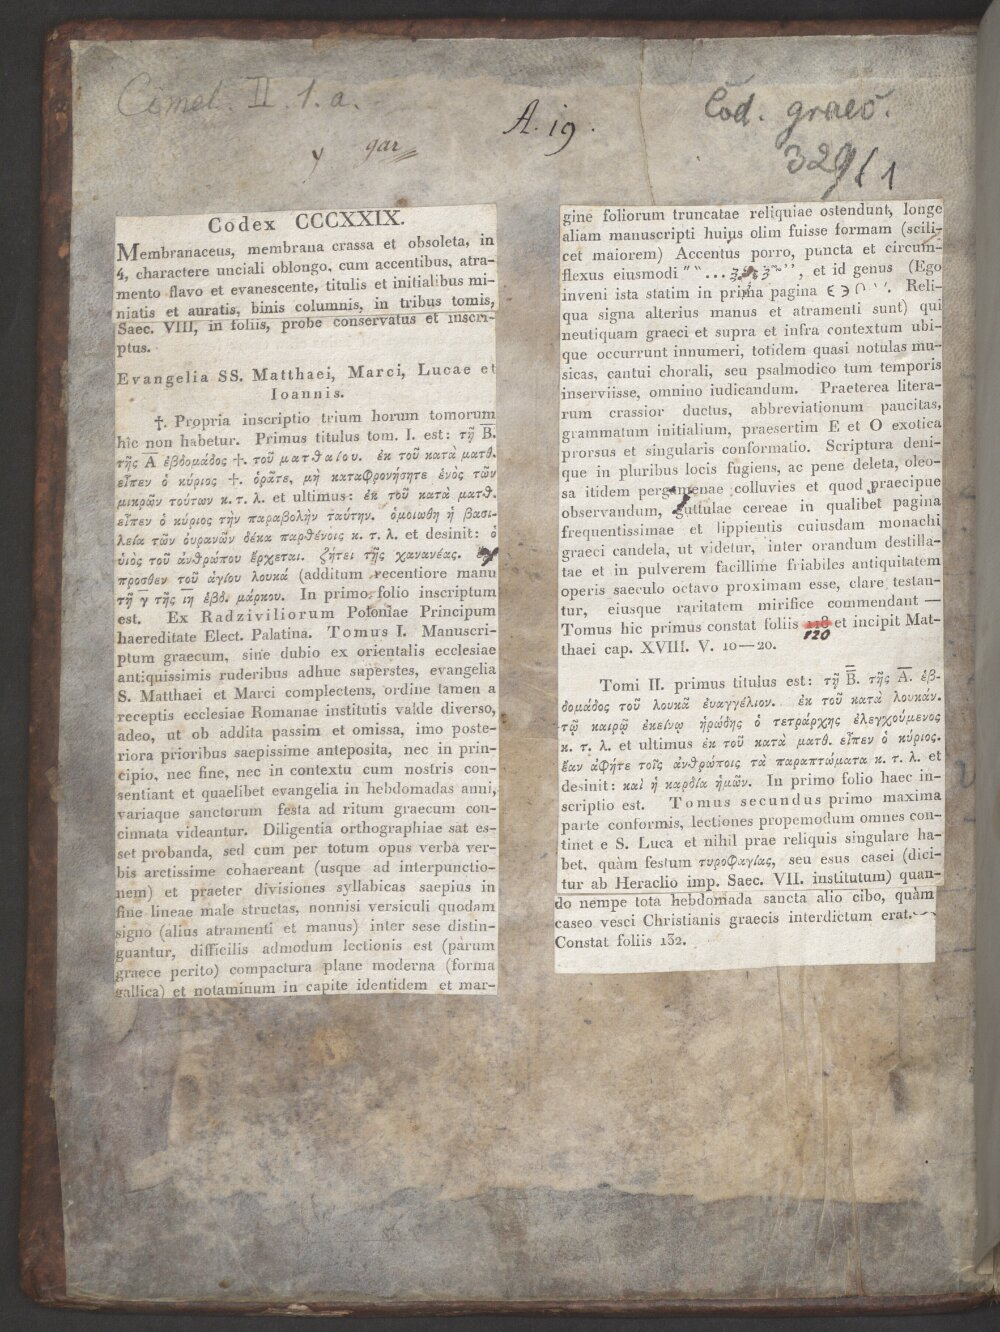 Cimel. II. 1. a.
A. 19.
Cod. graec.
329/1
y gar
Codex CCCXXIX.
Membranaceus, membrana crassa et obsoleta, in
4, charactere unciali oblongo, cum accentibus, atra-
mento flavo et evanescente, titulis et initialibus mi-
niatis et auratis, binis columnis, in tribus tomis,
Saec. VIII, in foliis, probe conservatus et inscri-
ptus.
Evangelia SS. Matthaei, Marci, Lucae et
Ioannis.
†. Propria inscriptio trium horum tomorum
hic non habetur. Primus titulus tom. I. est: τῇ Β̅.
τῆς Α̅ ἑβδομάδος +. τοῦ ματθαίου. ἐκ τοῦ κατὰ ματθ.
εἶπεν ὁ κύριος +. ὁρᾶτε, μὴ καταφρονήσητε ἑνὸς τῶν
μικρῶν τούτων κ. τ. λ. et ultimus: ἐκ τοῦ κατὰ ματθ.
εἶπεν ὁ κύριος τὴν παραβολὴν ταύτην. ὁμοιωθη ἡ βασι-
λεία τῶν οὐρανῶν δέκα παρθένοις κ. τ. λ. et desinit: ὁ
ὑιὸς τοῦ ἀνθρώπου ἔρχεται. ζήτει τῆς χανανέας.
προσθεν τοῦ ἁγίου λουκᾶ (additum recentiore manu
τῇ γ̅ τῆς ιη̅ ἑβδ. μάρκου. In primo folio inscriptum
est. Ex Radziviliorum Poloniae Principum
haereditate Elect. Palatina. Tomus I. Manuscri-
ptum graecum, sine dubio ex orientalis ecclesiae
antiquissimis ruderibus adhuc superstes, evangelia
S. Matthaei et Marci complectens, ordine tamen a
receptis ecclesiae Romanae institutis valde diverso,
adeo, ut ob addita passim et omissa, imo poste-
riora prioribus saepissime anteposita, nec in prin-
cipio, nec fine, nec in contextu cum nostris con-
sentiant et quaelibet evangelia in hebdomadas anni,
variaque sanctorum festa ad ritum graecum con-
cinnata videantur. Diligentia orthographiae sat es-
set probanda, sed cum per totum opus verba ver-
bis arctissime cohaereant (usque ad interpunctio-
nem) et praeter divisiones syllabicas saepius in
fine lineae male structas, nonnisi versiculi quodam
signo (alius atramenti et manus) inter sese distin-
guantur, difficilis admodum lectionis est (parum
graece perito) compactura plane moderna (forma
gallica) et notaminum in capite identidem et mar-
gine foliorum truncatae reliquiae ostendunt, longe
aliam manuscripti huius olim fuisse formam (scili-
cet maiorem) Accentus porro, puncta et circum-
flexus eiusmodi , et id genus (Ego
inveni ista statim in prima pagina . Reli-
qua signa alterius manus et atramenti sunt) qui
neutiquam graeci et supra et infra contextum ubi-
que occurrunt innumeri, totidem quasi notulas mu-
sicas, cantui chorali, seu psalmodico tum temporis
inserviisse, omnino iudicandum. Praeterea litera-
rum crassior ductus, abbreviationum paucitas,
grammatum initialium, praesertim E et O exotica
prorsus et singularis conformatio. Scriptura deni-
que in pluribus locis fugiens, ac pene deleta, oleo-
sa itidem pergamenae colluvies et quod praecipue
observandum, guttulae cereae in qualibet pagina
frequentissimae et lippientis cuiusdam monachi
graeci candela, ut videtur, inter orandum destilla-
tae et in pulverem facillime friabiles antiquitatem
operis saeculo octavo proximam esse, clare testan-
tur, eiusque raritatem mirifice commendant —
Tomus hic primus constat foliis 118 et incipit Mat-
120
thaei cap. XVIII. V. 10—20.
Tomi II. primus titulus est: τῇ Β̅. τῆς Α̅. ἑβ-
δομάδος τοῦ λουκᾶ ἐυαγγέλιον. ἐκ τοῦ κατὰ λουκάν.
τῷ καιρῷ ἐκείνῳ ἡρώδης ὁ τετράρχης ἐλεγχούμενος
κ. τ. λ. et ultimus ἐκ τοῦ κατὰ ματθ. εἶπεν ὁ κύριος.
ἔαν ἀφῆτε τοῖς ἀνθρώποις τὰ παραπτώματα κ. τ. λ. et
desinit: καὶ ἡ καρδία ἡμῶν. In primo folio haec in-
scriptio est. Tomus secundus primo maxima
parte conformis, lectiones propemodum omnes con-
tinet e S. Luca et nihil prae reliquis singulare ha-
bet, quàm festum τυροφαγίας, seu esus casei (dici-
tur ab Heraclio imp. Saec. VII. institutum) quan-
do nempe tota hebdomada sancta alio cibo, quàm
caseo vesci Christianis graecis interdictum erat.
Constat foliis 132.